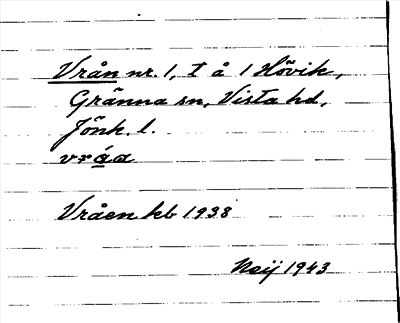 Vrån nr. 1, t å 1 Hövik,
Gränna sn, Vista hd,
Jönk. l.
vråa
Vråen kb 1938
Neij 1943